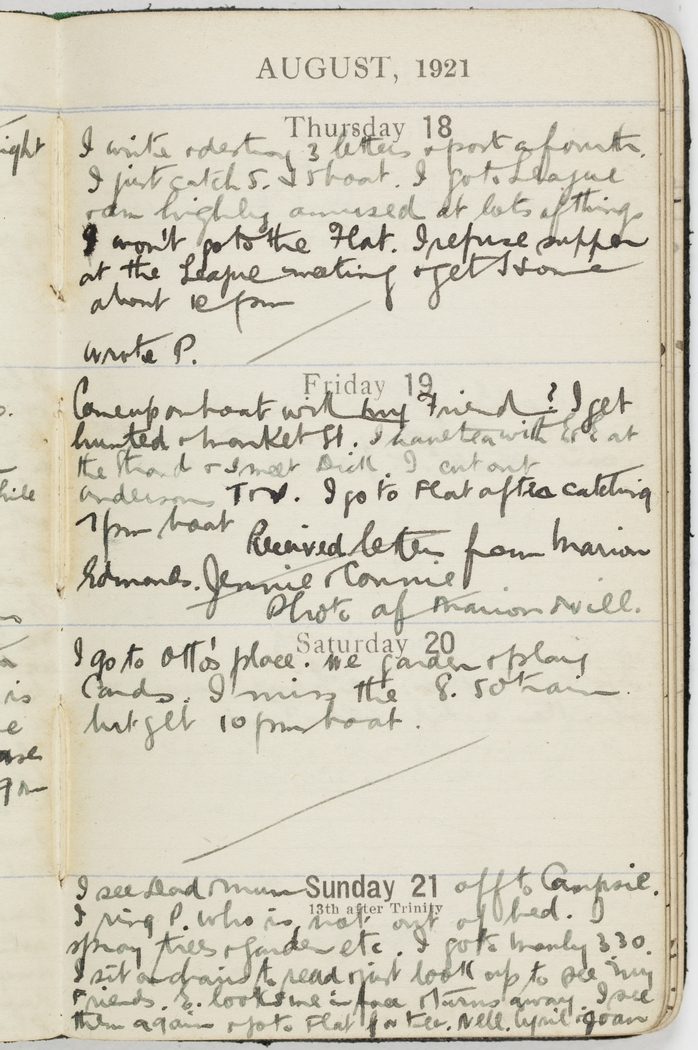 AUGUST, 1921
Thursday 18
I write & destroy 3 letters & post a fourth.
I just catch 5.15 boat. I go to League
& am highly amused at lots of things
I won't go to the Flat. I refuse supper
at the League meeting & get Home
about 12 pm
wrote P.
Friday 19
Come up on boat with my Friend? I get
hunted & market St. I have tea with & E at
the Strand & I meet Dick. I cut out
Andersons I go to Flat after catching
7pm boat Received letters from Marion
Edmonds. Jennie & Connie
Photo of Marion & Will.
Saturday 20
I go to Otto's place. We garden & play
Cards. I miss the 8.50 train
but get 10 pm boat.
Sunday 21
13th after Trinity
I see Dad & Mum off to Campsie.
I ring P. who is not out of bed. I
spray trees & garden etc. I go to Manly 3 30.
I sit on to read & just look up to see my
Friends. E. looks me in face & turns away. I see
them again & go to Flat for tea. Nell. Cyril & Joan
ight
hile
is